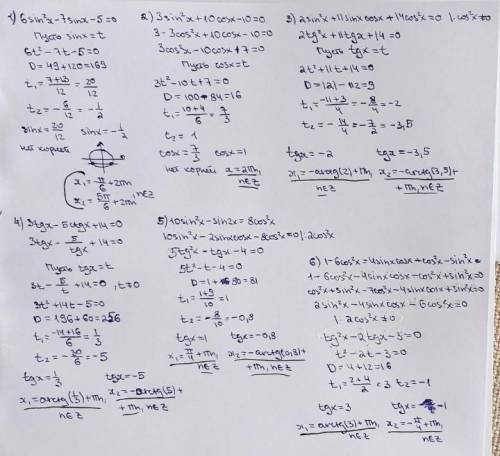 1) 6sin²x-7sinx-5=0
Пусть sinx=t
6t²-7t-5=0
D=49+120=169
t₁=7+13/12=20/12
t₂=-6/12=-1/2
sinx=20/12 sinx=-1/2
нет корней
x₁=-π/6+2πn
x₂=5π/6+2πn n∈Z
2) 3sin²x+10cosx-10=0
3-3cos²x+10cosx-10=0
3cos²x-10cosx+7=0
Пусть cosx=t
3t²-10t+7=0
D=100-84=16
t₁=10+4/6=7/3
t₂=1
cosx=7/3 cosx=1
нет корней x=2πn, n∈Z
3) 2sin²x+11sinxcosx+14cos²x=0 |:cos²x≠0
2tg²x+11tgx+14=0
Пусть tgx=t
2t²+11t+14=0
D=121-112=9
t₁=-11+3/4=-8/4=-2
t₂=-14/4=-7/2=-3,5
tgx=-2 tgx=-3,5
x₁=-arctg(2)+πn, n∈Z x₂=-arctg(3,5)+πn, n∈Z
4) 3tgx-5ctgx+14=0
3tgx-5/tgx+14=0
Пусть tgx=t
3t-5/t+14=0, t≠0
3t²+14t-5=0
D=196+60=256
t₁=-14+16/6=1/3
t₂=-30/6=-5
tgx=1/3 tgx=-5
x₁=arctg(1/3)+πn, n∈Z x₂=-arctg(5)+πn, n∈Z
5) 10sin²x-sin2x=8cos²x
10sin²x-2sinxcosx-8cos²x=0 |:2cos²x
5tg²x-tgx-4=0
5t²-t-4=0
D=1+80=81
t₁=1+9/10=1
t₂=-8/10=-0,8
tgx=1 tgx=-0,8
x₁=π/4+πn, n∈Z x₂=-arctg(0,8)+πn, n∈Z
6) 1-6cos²x=4sinxcosx+cos²x-sin²x
1-6cos²x-4sinxcosx-cos²x+sin²x=0
cos²x+sin²x-7cos²x-4sinxcosx+sin²x=0
2sin²x-4sinxcosx-6cos²x=0
|:2cos²x≠0
tg²x-2tgx-3=0
t²-2t-3=0
D=4+12=16
t₁=2+4/2=3 t₂=-1
tgx=3 tgx=-1
x₁=arctg(3)+πn, n∈Z x₂=-π/4+πn, n∈Z